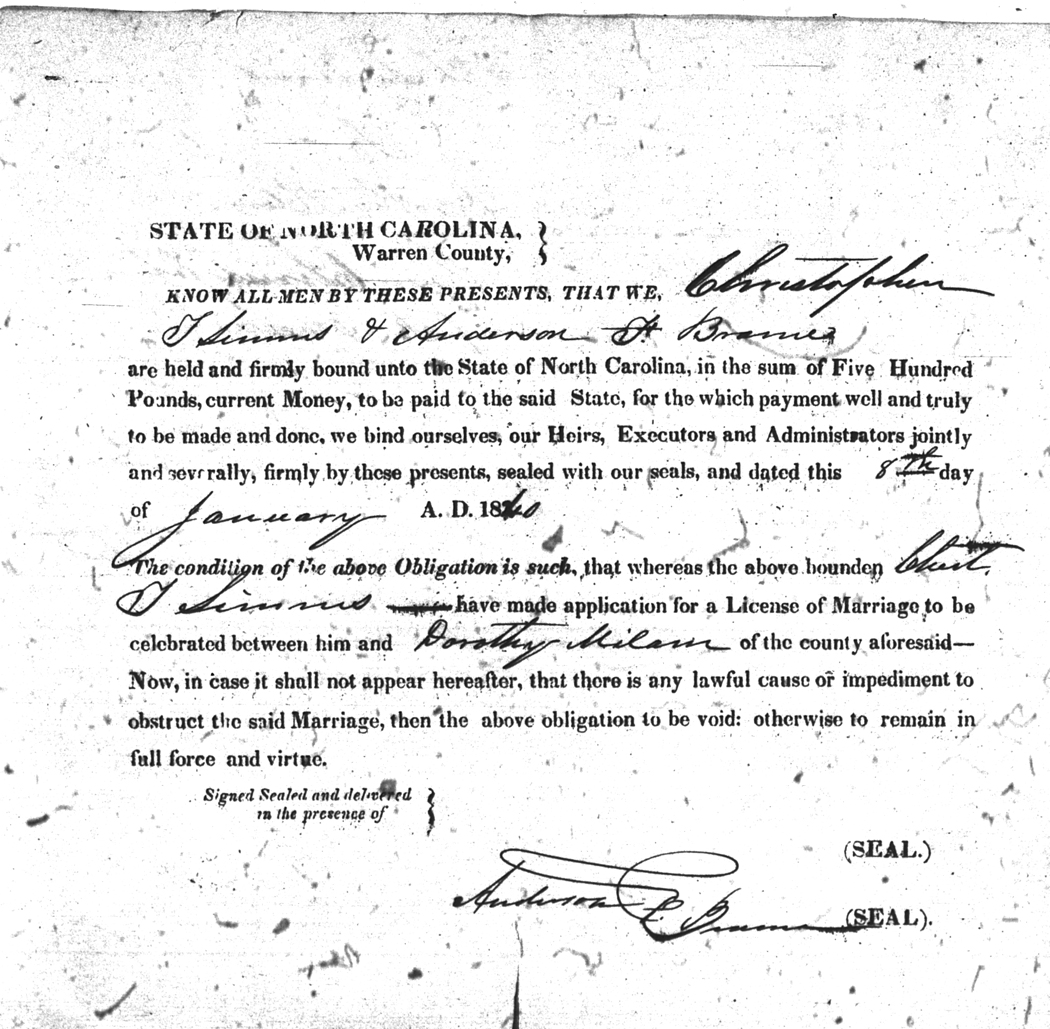 STATE OF NORTH CAROLINA,
Warren County,
KNOW ALL MEN BY THESE PRESENTS, THAT WE, Christopher
T Simms & Anderson F. Brame
are held and firmly bound unto the State of North Carolina, in the sum of Five Hundred
Pounds, current Money, to be paid to the said State, for the which payment well and truly
to be made and done, we bind ourselves, our Heirs, Executors and Administrators jointly
and severally, firmly by these presents, sealed with our seals, and dated this 8th day
of January A. D. 1840
The condition of the above Obligation is such, that whereas the above bounden Christ.
T Simms have made application for a License of Marriage to be
celebrated between him and Dorothy Milam of the county aforesaid—
Now, in case it shall not appear hereafter, that there is any lawful cause or impediment to
obstruct the said Marriage, then the above obligation to be void: otherwise to remain in
full force and virtue.
Signed Sealed and delivered
in the presence of
(SEAL.)
Anderson Brame (SEAL).